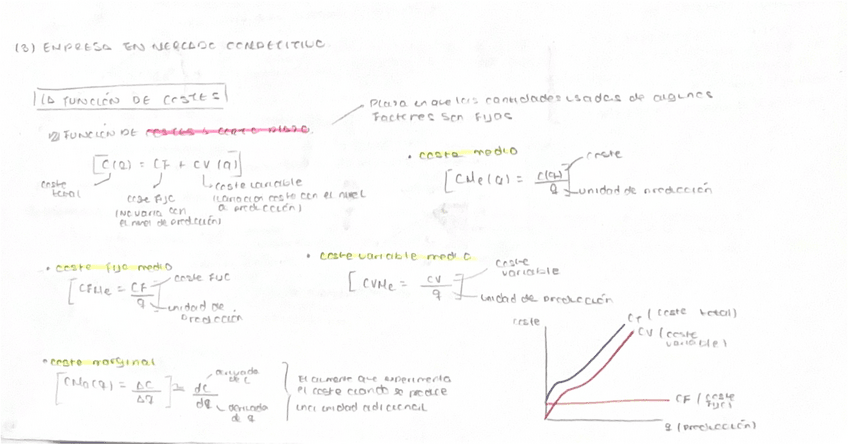 (3) EMPRESA EN MERCADO COMPETITIVO.
1) FUNCIÓN DE COSTES
Plazo en que las cantidades usadas de algunos
factores son fijos
1) FUNCIÓN DE COSTES A CORTO PLAZO.
[C(Q) = CF + CV(Q)]
coste
total
coste fijo
(No varía con
el nivel de producción)
coste variable
(variación coste con el nivel
de producción)
• coste medio
[CMe(Q) = C(Q)/q]
coste
unidad de producción
• coste fijo medio
[CFMe = CF/q]
coste fijo
unidad de
producción
• coste variable medio
[CVMe = CV/q]
coste
variable
unidad de producción
• coste marginal
[CMa(q) = ΔC/Δq] = dC/dq
derivada
de C
derivada
de q
El aumento que experimenta
el coste cuando se produce
una unidad adicional
coste
CT (coste total)
CV (coste
variable)
CF (coste
fijo)
q (producción)